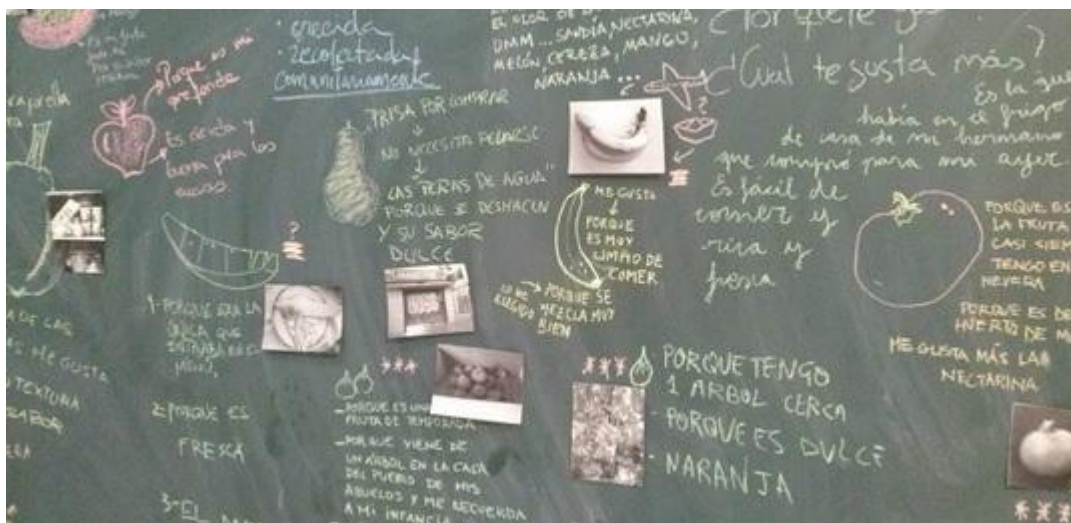 crecida
recolectada
comunitariamente
UMM... SANDÍA, NECTARINA,
MELÓN, CEREZA, MANGO,
NARANJA...
¿Cuál te gusta más?
Es la que
había en el frigo
de casa de mi hermano
que compró para mí ayer.
Es fácil de
comer y
rica y
fresca
Porque es mi
preferida
Es
buena para los
PRISA POR COMPRAR
NO NECESITA PELARSE
LAS PERAS DE AGUA"
PORQUE SE DESHACEN
Y SU SABOR
DULCE
?
ME GUSTA
PORQUE
ES MUY
LIMPIO DE
COMER
PORQUE SE
MEZCLA MUY
BIEN
PORQUE ES
LA FRUTA
CASI SIEM
TENGO EN
NEVERA
PORQUE ES DE
HUERTO DE M
ME GUSTA MÁS LA
NECTARINA
1-PORQUE ERA LA
ÚNICA QUE
2-PORQUE ES
FRESCA
3-EL
ME GUSTA
TEXTURA
PORQUE ES UNA
FRUTA DE TEMPORADA
PORQUE VIENE DE
UN ÁRBOL EN LA CASA
DEL PUEBLO DE MIS
ABUELOS Y ME RECUERDA
A MI INFANCIA
PORQUE TENGO
1 ARBOL CERCA
- PORQUE ES DULCE
- NARANJA